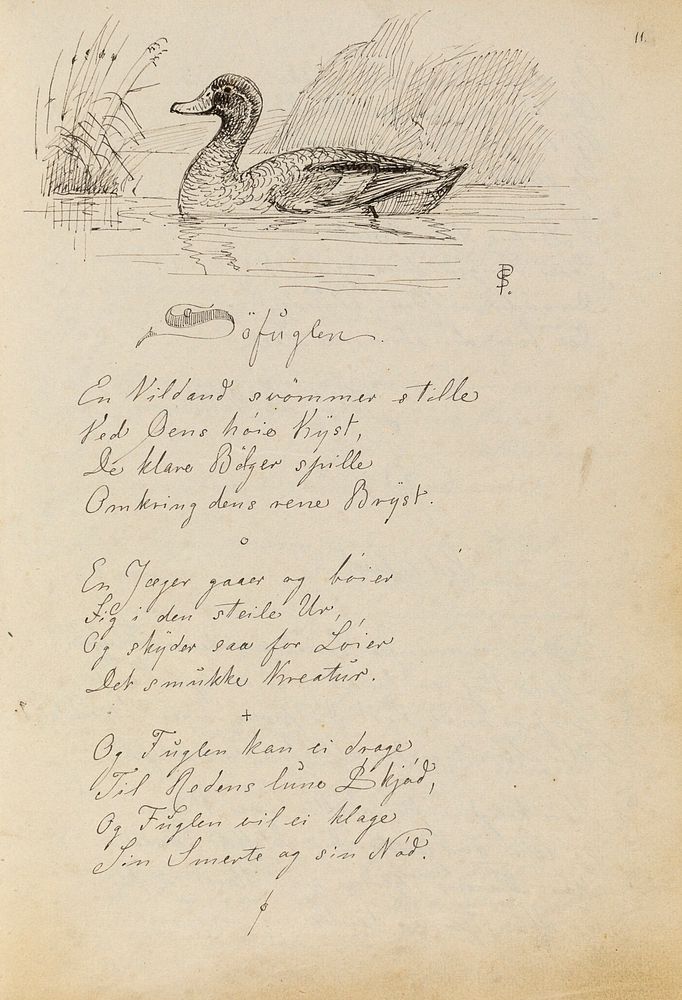 11.
PS.
Söfuglen.
En Vildand svömmer stille
Ved Öens höie Kyst,
De klare Bölger spille
Omkring dens rene Bryst.
En Jæger gaaer og böier
Sig i den steile Ur,
Og skyder saa for Löier
Det smukke Kreatur.
Og Fuglen kan ei drage
Til Redens lune Skjöd,
Og Fuglen vil ei klage
Sin Smerte og sin Nöd.